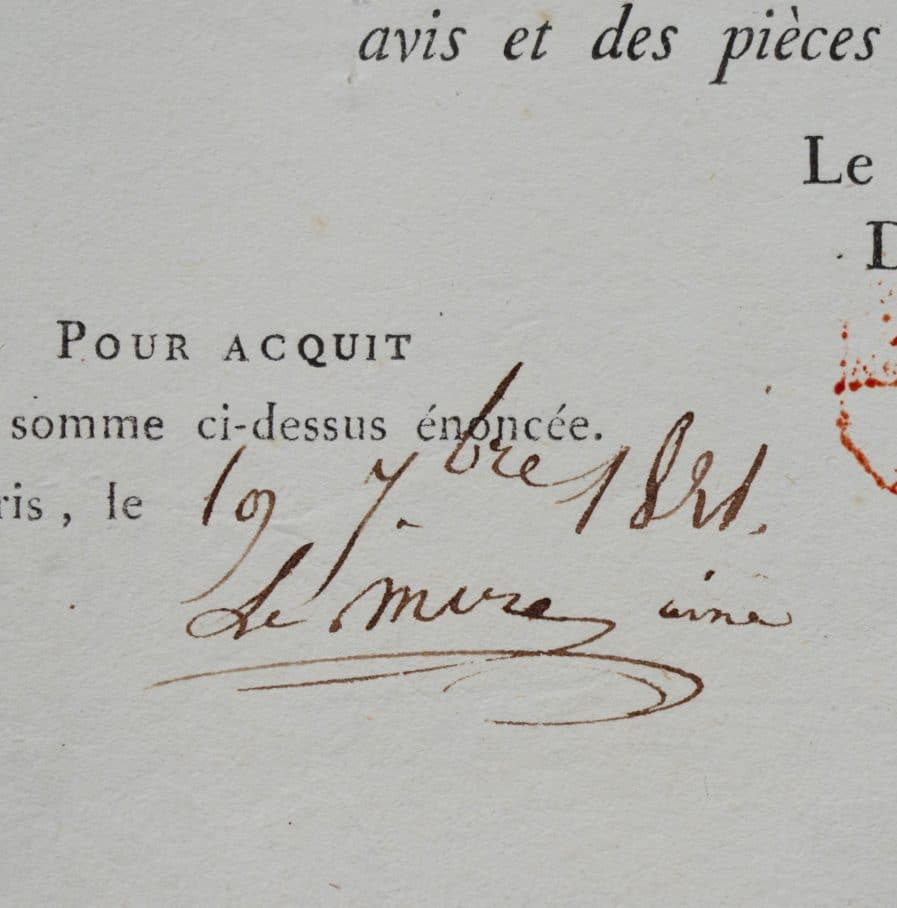 avis et des pièces
Le
D
POUR ACQUIT
somme ci-dessus énoncée.
ris, le 19 7bre 1821.
Le mire ainé